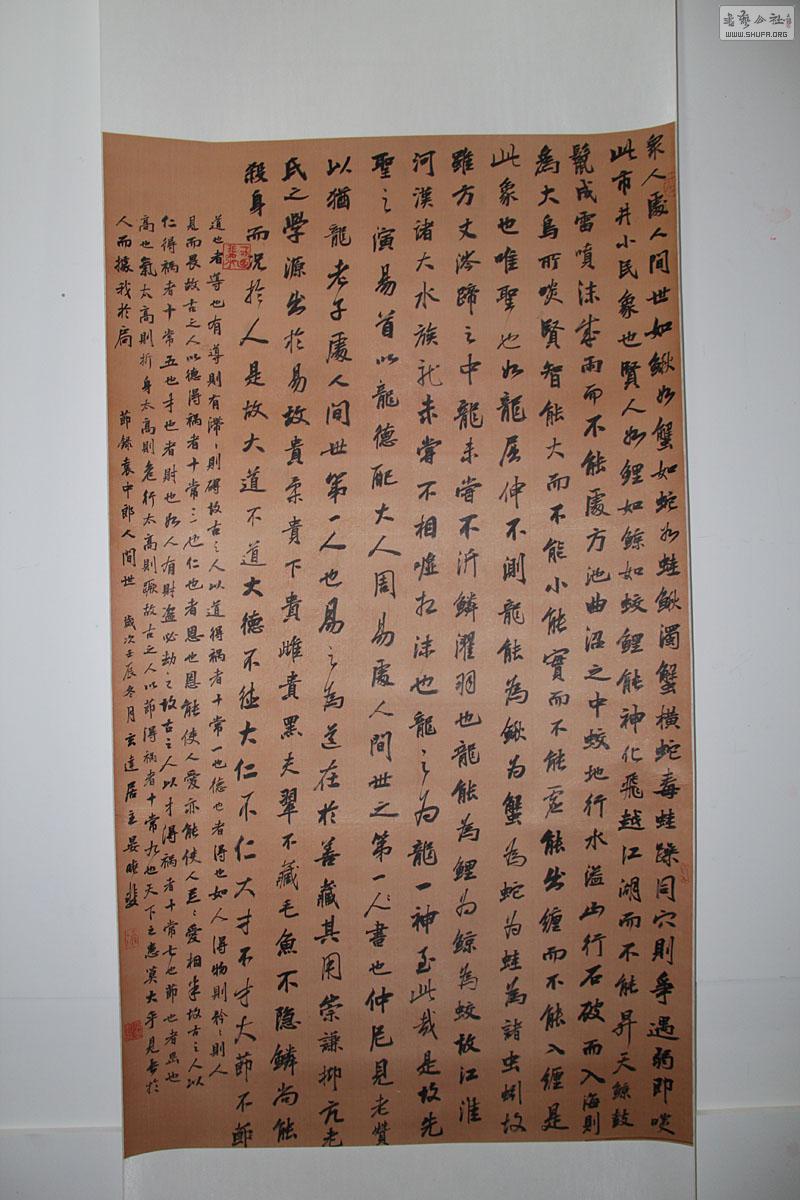 眾人處人間世如鰍如蟹如蛇如蛙鰍濁蟹橫蛇毒蛙躁同穴則爭遇弱即啖
此市井小民象也賢人如鯉如鯨如蛟鯉能神化飛越江湖而不能昇天鯨鼓
鬣成雷噴沫成雨而不能處方池曲沼之中蛟地行水溢山行石破而入海則
為大鳥所啖賢智能大而不能小能實而不能虛能出纏而不能入纏是
此象也唯聖也如龍屈伸不測龍能為鰍為蟹為蛇為蛙為諸虫蚓故
雖方丈涔蹄之中龍未嘗不泝鱗濯羽也龍能為鯉為鯨為蛟故江淮
河漢諸大水族龍未嘗不相噓相沫也龍之為龍一神至此哉是故先
聖之演易首以龍德配大人周易處人間世之第一人之書也仲尼見老贊
以猶龍老子處人間世第一人也易之為道在於善藏其用崇謙抑亢老
氏之學源出於易故貴柔貴下貴雌貴黑夫翠不藏毛魚不隱鱗尚能
殺身而況於人是故大道不道大德不德大仁不仁大才不才大節不節
道也者導也有導則有滯滯則碍故古之人以道得禍者十常一也德也者得也如人得物則矜矜則人
見而畏故古之人以德得禍者十常三也仁也者恩也恩能使人愛亦能使人忌忌愛相半故古之人以
仁得禍者十常五也才也者財也如人有財盜必劫之故古之人以才得禍者十常七也節也者品也
高也氣太高則折身太高則危行太高則蹶故古之人以節得禍者十常九也天下之患莫大乎見長於
人而據我於扃 節錄袁中郎人間世 歲次壬辰冬月玄達居主晏曉斐
書藝公社
WWW.SHUFA.ORG